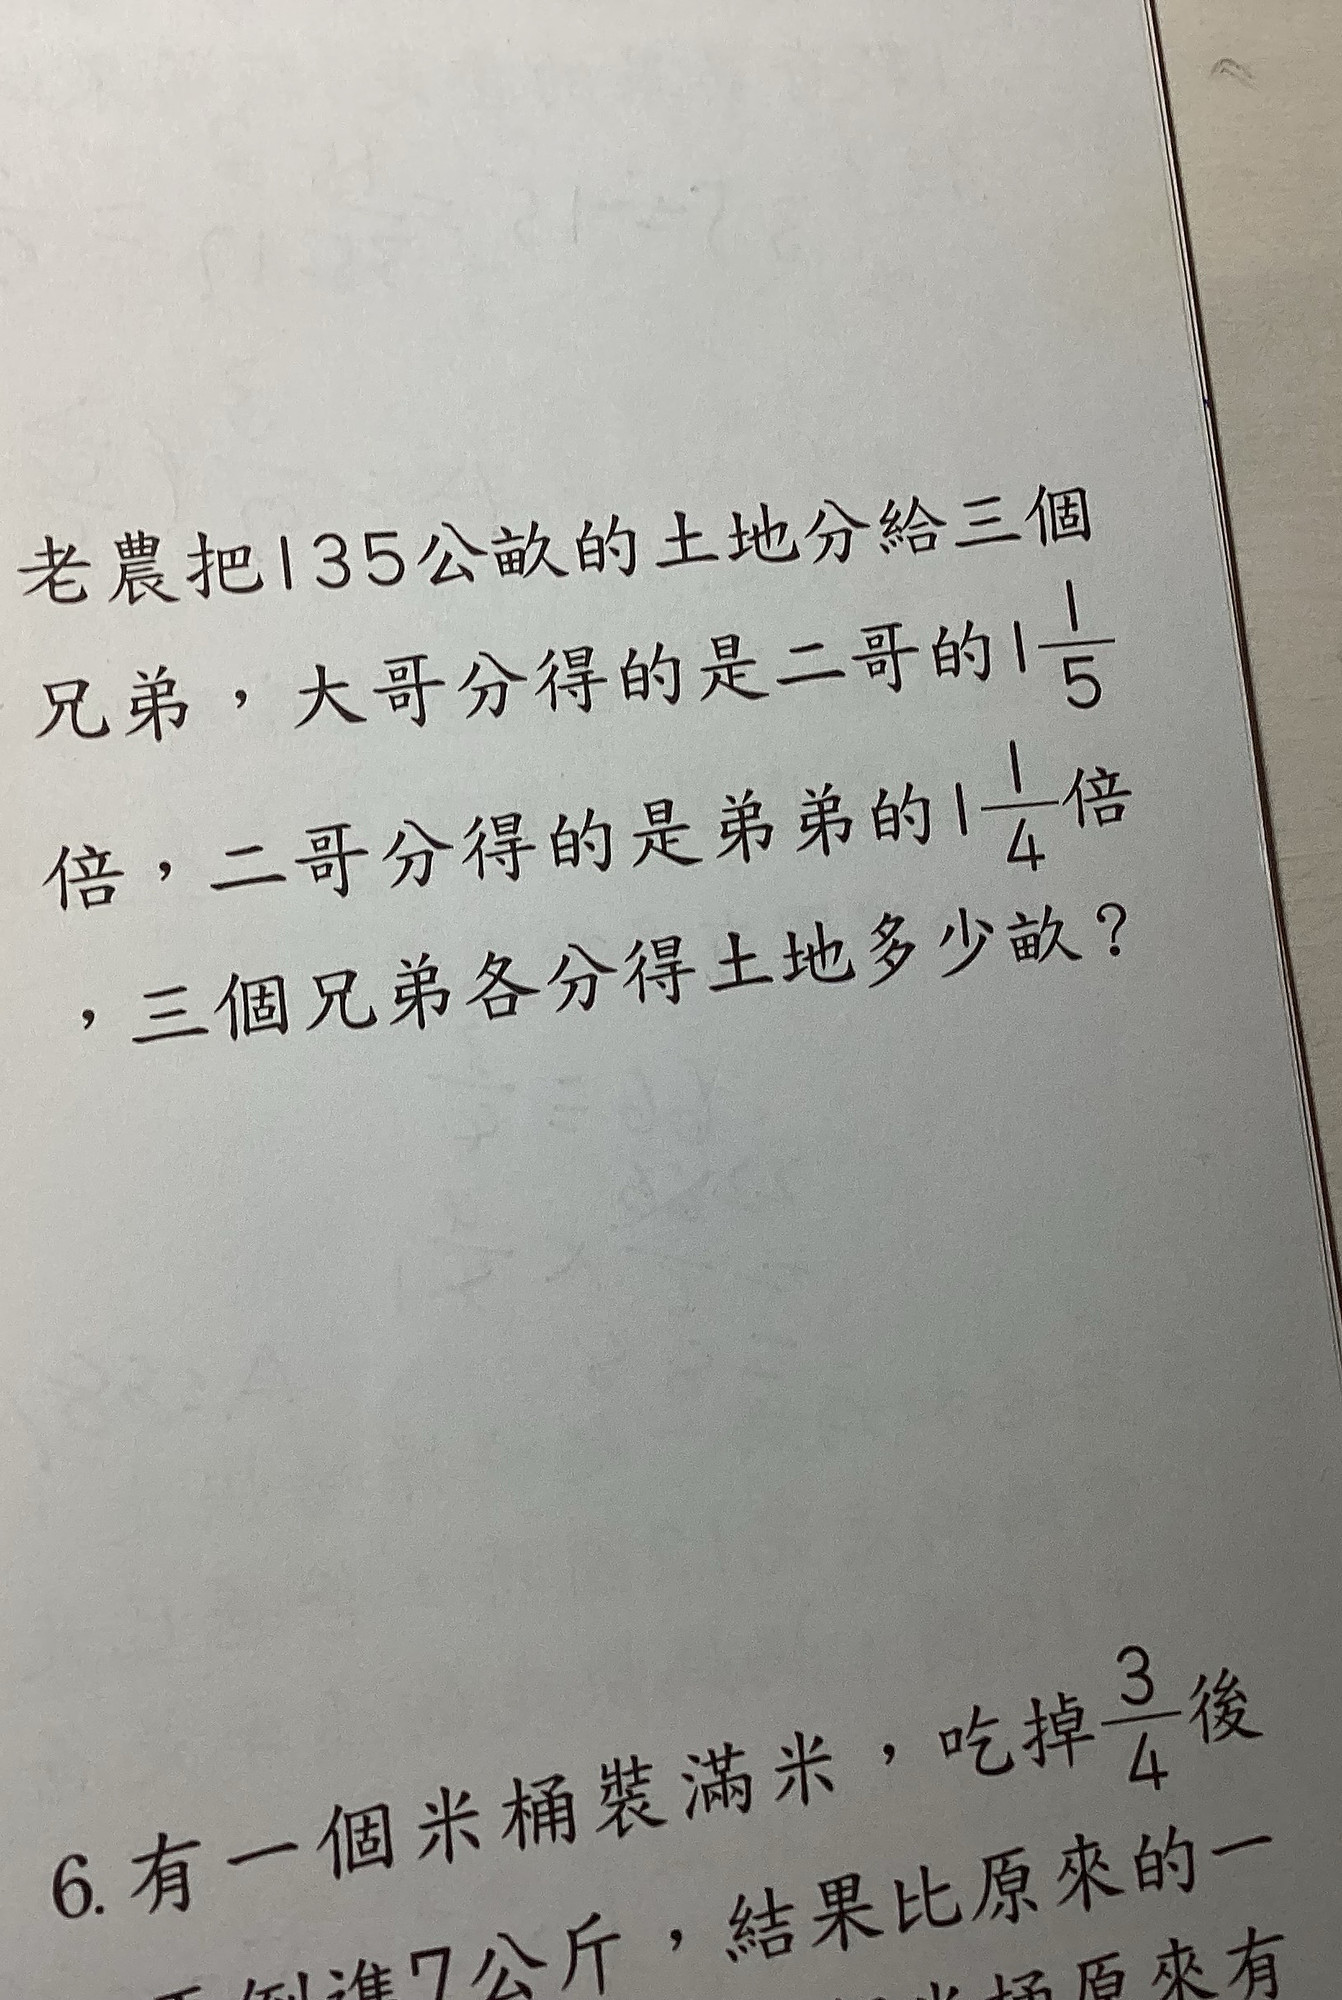 老農把135公畝的土地分給三個
兄弟，大哥分得的是二哥的1 1/5
倍，二哥分得的是弟弟的1 1/4倍
，三個兄弟各分得土地多少畝？
6. 有一個米桶裝滿米，吃掉3/4後
倒進7公斤，結果比原來的一
米桶原來有